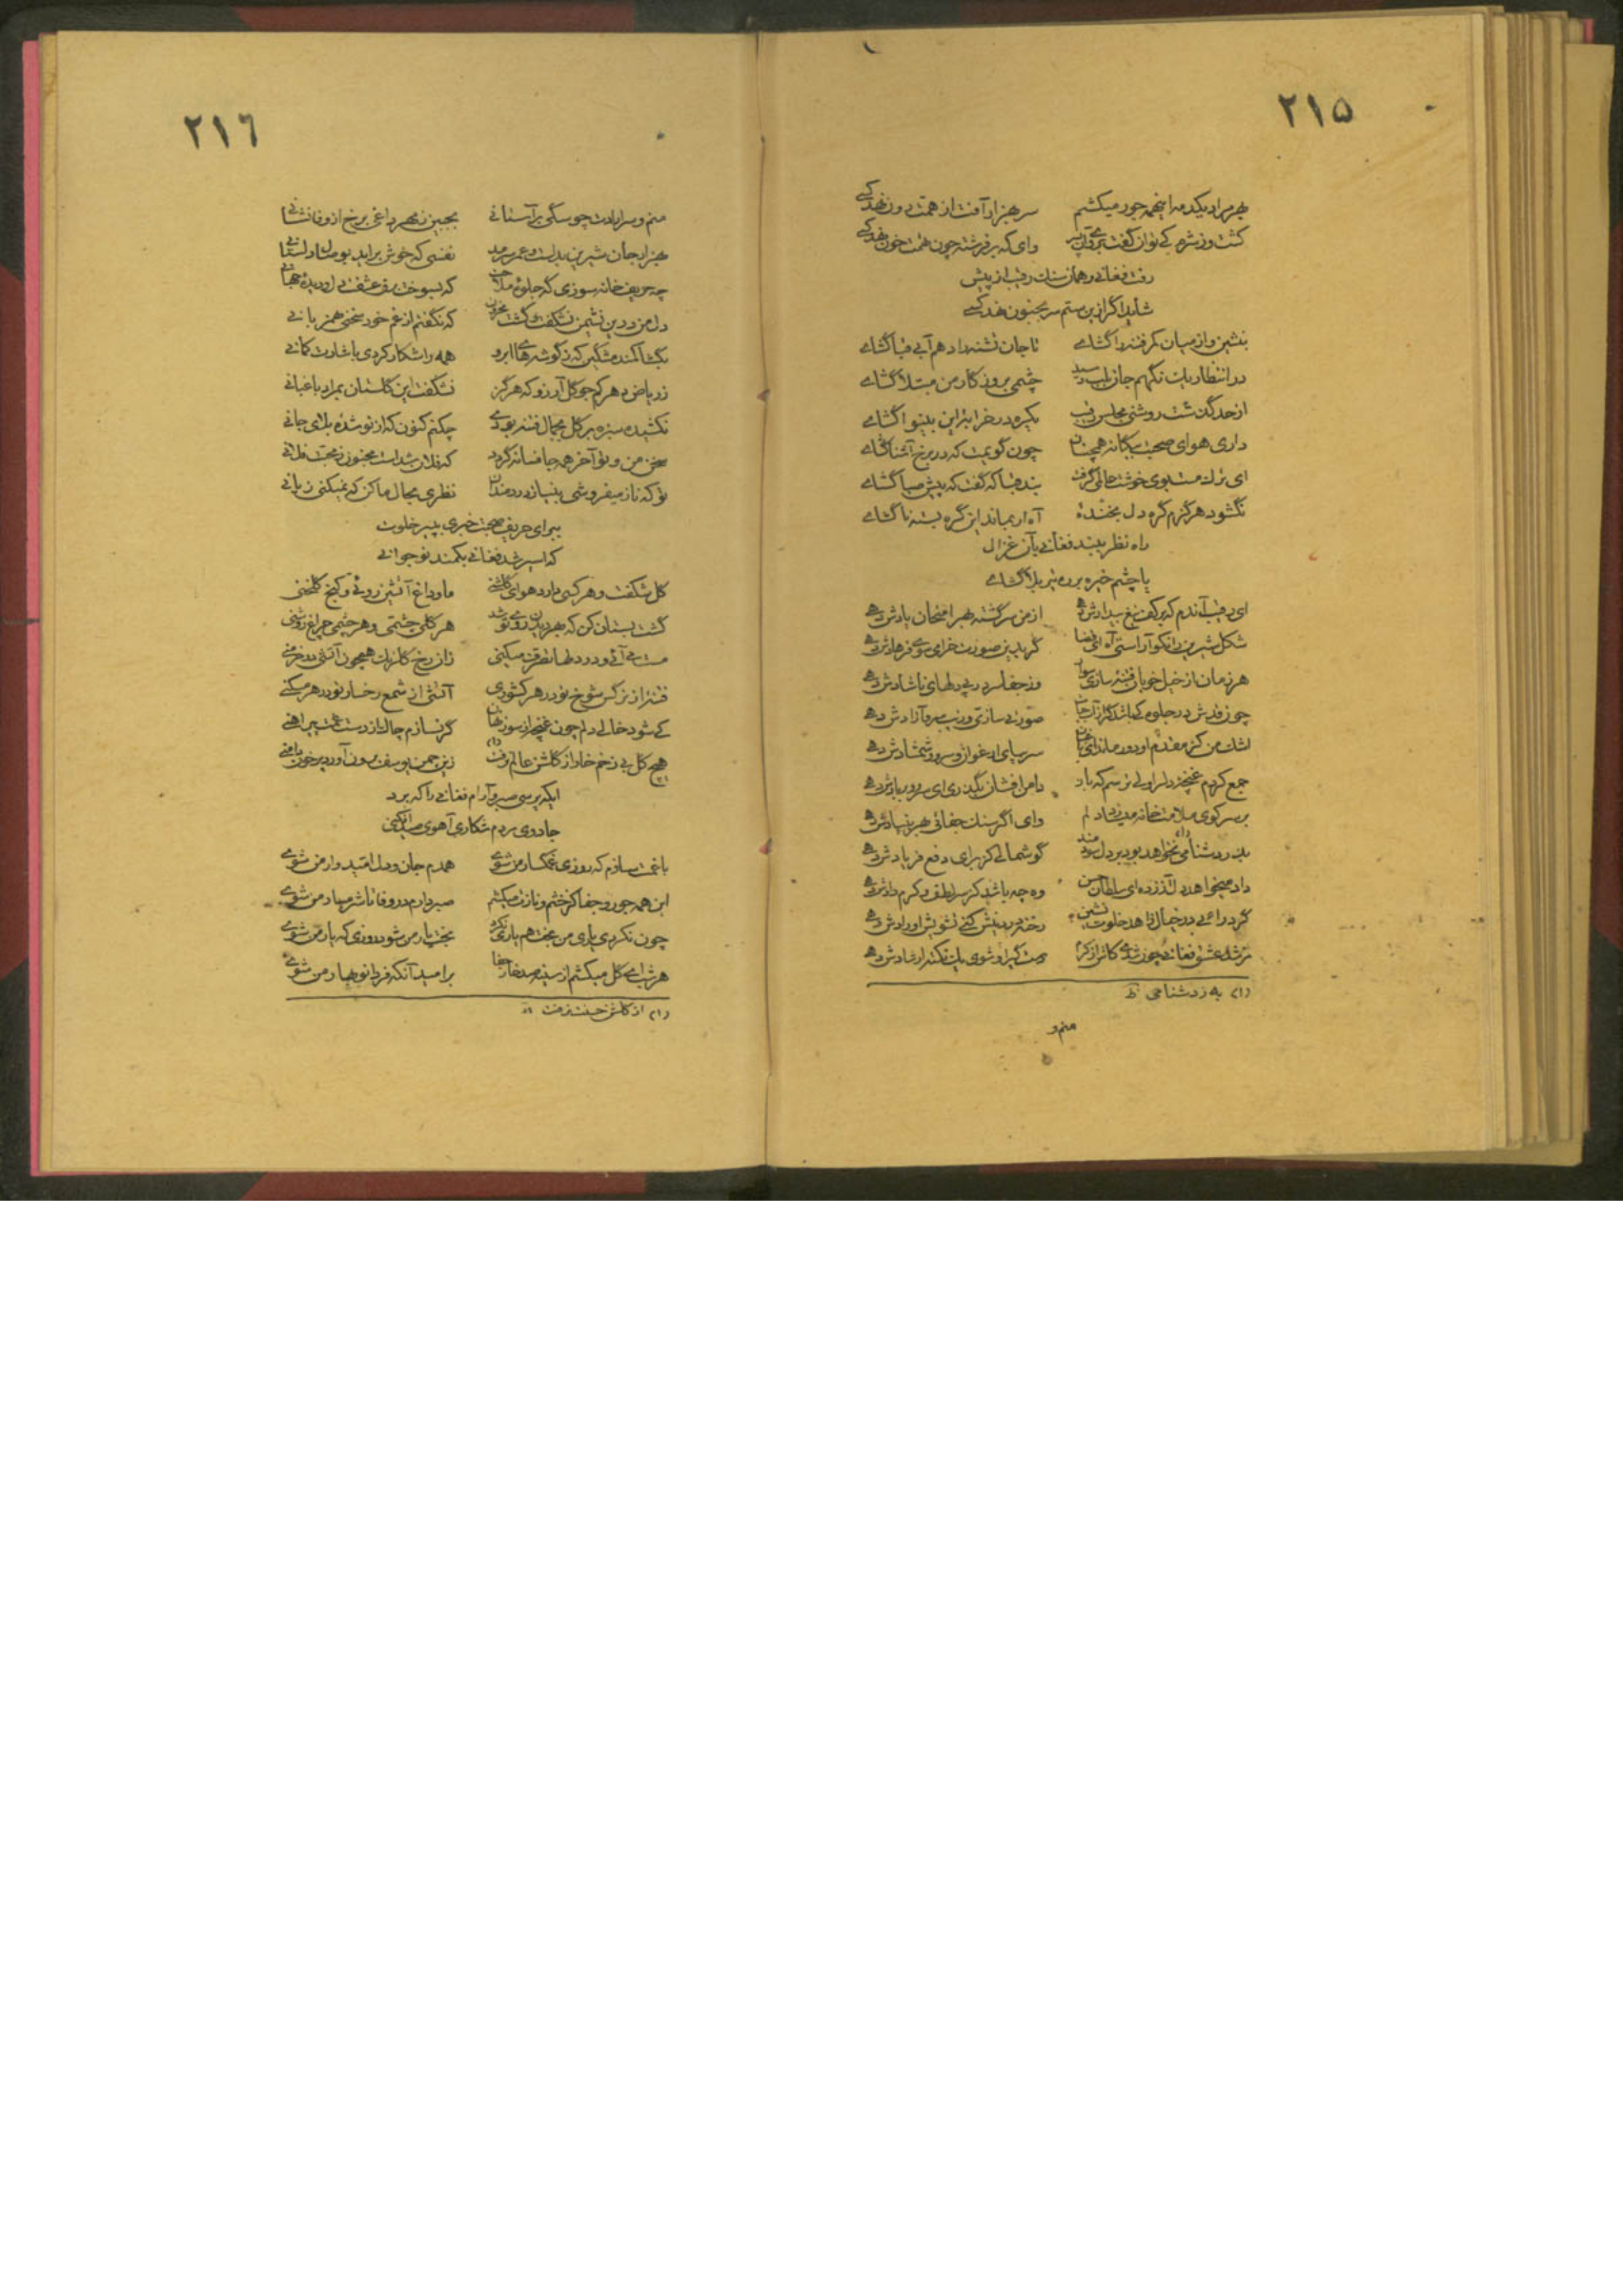 ٢١٥
بهر مراد یکدمه اینهمه جور میکشم سر بهزار آفت از همت دون نهد کسے
کشت وز شرم کے توان گفت وای که بر فرشته چون تهمت خون نهد کسے
رفت فغانے و همان سنك رقیب از پیش
شاید اگر ازین ستم سر بجنون نهد کسے
بنشین و از میان کمر فتنه را گشاے تا جان تشنه را دهم آبے قبا گشاے
در انتظار یك نگهم جان بلب رسید چشمی بروز کار من مبتلا گشاے
از حد گذشت روشنی مجلس رقیب یکره در خرابۀ این بینوا گشاے
داری هوای صحبت بیگانه همچنان چون گویمت که در برخ آشنا گشاے
ای ترك مست بوی خوشت عالمی گرفت بند قبا که گفت که پیش صبا گشاے
نگشود هرگزم گره دل بخندۀ آه ار بماند این گره بسته نا گشاے
راه نظر ببند فغانے بآن غزال
یا چشم خیره بر ره تیر بلا گشاے
ای رقیب آندم که بر کف تیغ بیدادش دهے از من سرگشته بهر امتحان یادش دهے
شکل شیرین را نکو آراستی گر بدین صورت خرامی سوے فرهادش دهے
هر زمان از خیل خوبان فتنۀ سازی سوار وز جفا سر در پے دلهای ناشادش دهے
چون قدش در جلوه کے باشد صورتے سازی و زیب سرو آزادش دهے
اشك من کز مقدم او دور ماند ای باغبان سر بپای ارغوان و سرو و شمشادش دهے
جمع کردم غنچۀ دل را ولے ترسم که باد دامن افشان بگذری ای سرو و بر بادش دهے
بر سر کوی ملامت خانه دلم وای اگر سنك جفائی بهر بنیادش دهے
بدردشنامی نخواهد بود بر دل سودمند گوشمالے کز برای دفع فریادش دهے
داد میخواهد دل آذرده ای سلطان حسن وه چه باشد کز سر لطف و کرم دادش دهے
گر در آئے در خیال زاهد خلوت نشین رخنه در دینش کنے تشویش اورادش دهے
مرشد عشق فغانے چون شدے دست گیر او شوی یك نکته ارشادش دهے
(١) به زدشنامی ظ
منم و
٢١٦
منم و سر ارادت چو سگی بر آستانے بجبین ز مهر داغی برخ از وفا نشانے
بهزار جان شیرین بدلست و عمر سرمد نفسی که خوش بر آید بوصال دلستانے
چه حریف خانه سوزی که جلوۀ ملاحت که بسوخت برق عشقت
دل من درین نشیمن نشکفت و گشت محزون که نگفتم از غم خود سخنی همزبانے
بگشا کمند مشکین که ز گوشهاے ابرو همه را شکار کردی باشارت کمانے
ز ریاض دهر کم جو گل آرزو که هرگز نشکفت این گلستان بمراد باغبانے
نکشیده سبزه بر گل بجمال فتنه بودے چکنم کنون که از نو شدۀ بلای جانے
سخن من و تو آخر همه جا فسانه گردد که فلان شداست مجنون ز محبت فلانے
تو که ناز میفروشی بنیاز دردمندان نظری بحال ما کن که نمیکنی زیانے
ببر ای حریف صحبت خبری بپیر خلوت
که اسیر شد فغانے بکمند نوجوانے
گل شکفت و هر کسی دارد هوای گلشنے ما و داغ آتشین روئے و کنج گلخنی
گشت بستان کن که بهر دیدن روے تو شد هر گلی چشمی و هر چشمی چراغ روشنی
مست مے آئے و در دلها تصرف میکنی زان رخ گلرنگ همچون آتشی در خرمنے
فتنۀ از نرگس شوخ تو در هر کشوری آتشی از شمع رخسار تو در هر مسکنے
کے شود خالے دلم چون غنچه از سوز نهان گر نسازم چاك از دست غمت پیراهنے
هیچ گل بے زخم خار از گلشن عالم نرفت زین چمن یوسف برون آورد پر خون دامنے
ایکه پرسی صبر و آرام فغانے را که برد
جادوی مردم شکاری آهوی صید افکنی
با غمت سازم که روزی غمگسار من شوے همدم جان و دل امیدوار من شوے
این همه جور و جفا کز خشم و نازت میکشم صبر دارم در وفا تا شرمسار من شوے
چون نکردی یاری من بخت هم یاری نکرد بخت یار من شود روزی که یار من شوے
هر شب اے گل میکشم از سینه صد خار جفا بر امید آنکه فردا نوبهار من شوے
(١) از گلشن جنت نرفت